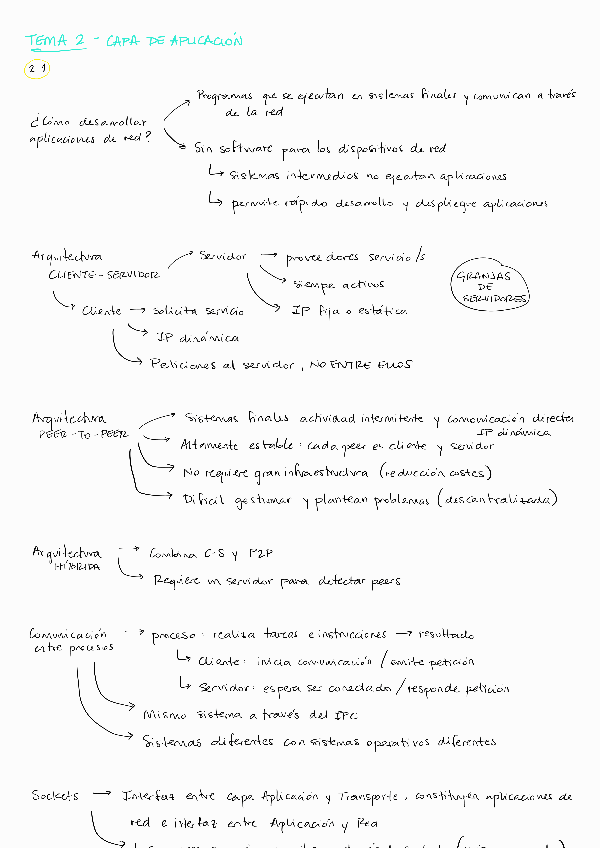 TEMA 2 - CAPA DE APLICACIÓN
2.1
Programas que se ejecutan en sistemas finales y comunican a través
de la red
¿Cómo desarrollar
aplicaciones de red?
Sin software para los dispositivos de red
↳ sistemas intermedios no ejecutan aplicaciones
↳ permite rápido desarrollo y despliegue aplicaciones
Arquitectura
CLIENTE - SERVIDOR
Servidor → proveedores servicio/s
siempre activos
IP fija o estática
GRANJAS
DE
SERVIDORES
Cliente → solicita servicio
IP dinámica
Peticiones al servidor, NO ENTRE ELLOS
Arquitectura
PEER - TO - PEER
Sistemas finales actividad intermitente y comunicación directa
IP dinámica
Altamente estable: cada peer es cliente y servidor
No requiere gran infraestructura (reducción costes)
Difícil gestionar y plantean problemas (descentralizada)
Arquitectura
HÍBRIDA
Combina C-S y P2P
Requiere un servidor para detectar peers
Comunicación
entre procesos
proceso: realiza tareas e instrucciones → resultado
↳ Cliente: inicia comunicación / emite petición
↳ Servidor: espera ser conectado / responde petición
Mismo sistema a través del IPC
Sistemas diferentes con sistemas operativos diferentes
Sockets → Interfaz entre capa Aplicación y Transporte, constituyen aplicaciones de
red e interfaz entre Aplicación y Red